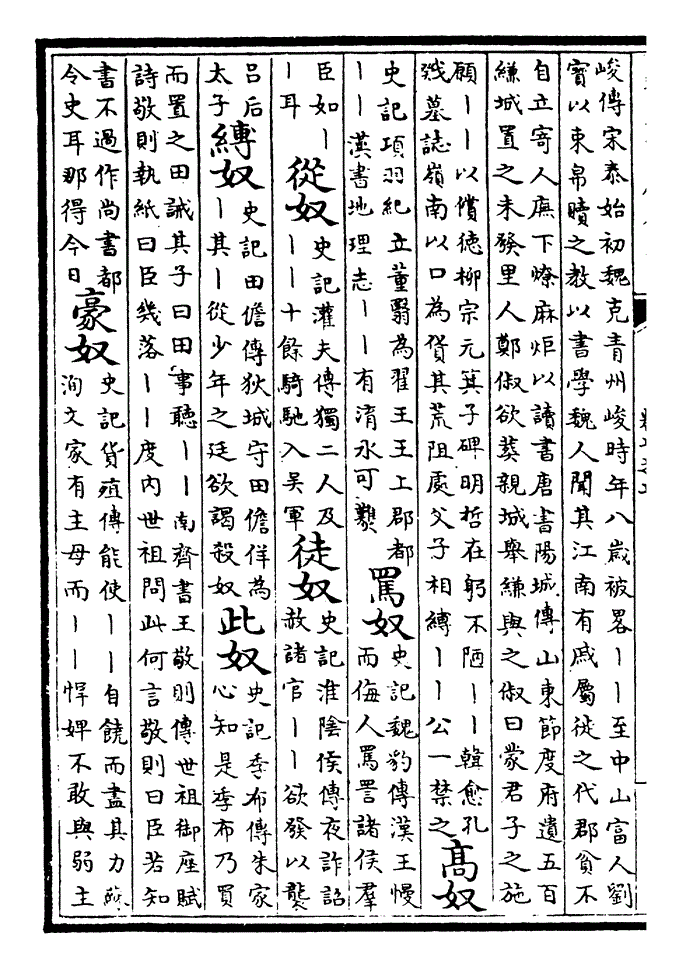 峻傳宋泰始初魏克青州峻時年八歲被畧丨丨至中山富人劉
寳以束帛贖之教以書學魏人聞其江南有戚屬徙之代郡貧不
自立寄人廡下燎麻炬以讀書唐書陽城傳山東節度府遺五百
縑城置之未發里人鄭俶欲葬親城舉縑與之俶曰蒙君子之施
願丨丨以償德柳宗元箕子碑明哲在躬不陋丨丨韓愈孔
戣墓誌嶺南以口為貨其荒阻處父子相縛丨丨公一禁之
高奴
史記項羽紀立董翳為翟王王上郡都
丨丨漢書地理志丨丨有洧水可㸐
罵奴
史記魏豹傳漢王慢
而侮人罵詈諸侯羣
臣如丨
丨耳
從奴
史記灌夫傳獨二人及
丨丨十餘騎馳入吳軍
徒奴
史記淮陰侯傳夜詐詔
赦諸官丨丨欲發以襲
吕后
太子
縛奴
史記田儋傳狄城守田儋佯為
丨其丨從少年之廷欲謁殺奴
此奴
史記季布傳朱家
心知是季布乃買
而置之田誡其子曰田事聽丨丨南齊書王敬則傳世祖御座賦
詩敬則執紙曰臣幾落丨丨度内世祖問此何言敬則曰臣若知
書不過作尚書都
令史耳那得今日
豪奴
史記貨殖傳能使丨丨自饒而盡其力蘇
洵文家有主母而丨丨悍婢不敢與弱主